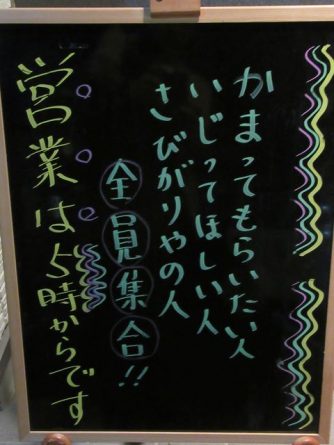 かまってもらいたい人
いじってほしい人
さびがりやの人
全員集合!!
営業は5時からです